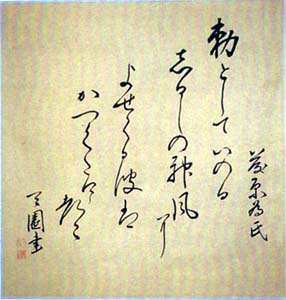 藤原為氏
勅としていのる
しるしの神風に
よせくる波は
かつくたけつゝ